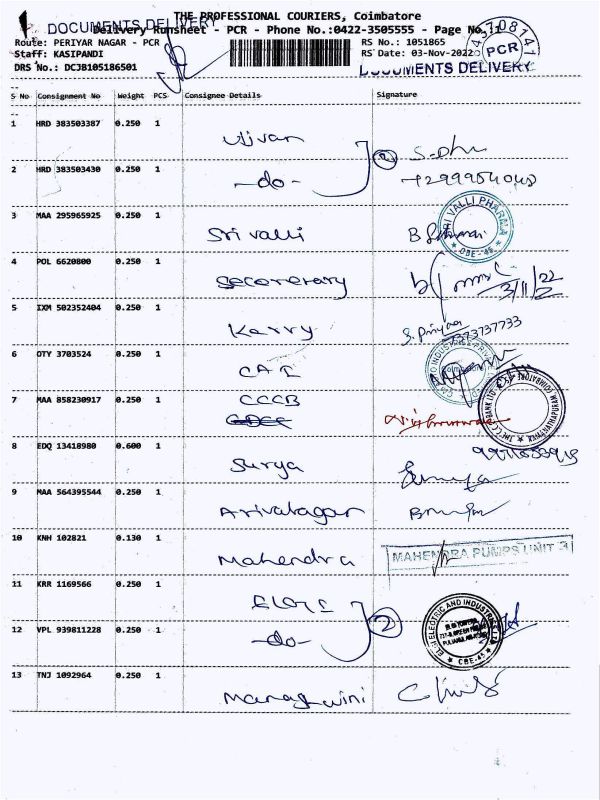 DOCUMENTS DELIVERY
THE PROFESSIONAL COURIERS, Coimbatore
Delivery Runsheet - PCR - Phone No.:0422-3505555 - Page No.:1
Route: PERIYAR NAGAR - PCR RS No.: 1051865
Staff: KASIPANDI RS Date: 03-Nov-2022
PCR
DRS No.: DCJB105186501 DOCUMENTS DELIVERY
S No Consignment No Weight PCS Consignee Details Signature
1 HRD 383503387 0.250 1 Ujivan
2 HRD 383503430 0.250 1 -do- 2
3 MAA 295965925 0.250 1 Sri valli
SRI VALLI PHARMA CBE-45
4 POL 6620800 0.250 1 Secorerary 3/11/22
5 IXM 502352404 0.250 1 Karry S. Priyaa
7373737733
6 OTY 3703524 0.250 1 CAI
7 MAA 858230917 0.250 1 CCCB
8 EDQ 13418980 0.600 1 Surya
9 MAA 564395544 0.250 1 Arivalagan
10 KNH 102821 0.130 1 Mahendra
MAHENDRA PUMPS UNIT 3
11 KRR 1169566 0.250 1
12 VPL 939811228 0.250 1 -do- 2
ELECTRIC AND INDUSTRIES CBE-45
13 TNJ 1092964 0.250 1